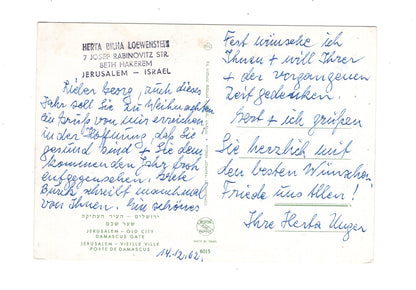 HERTA BILITA LOEWENSTEIN
7 JOSEF RABINOVITZ STR.
BETH HAKEREM
JERUSALEM – ISRAEL
Lieber Georg, auch dieses
Jahr soll Sie zu Weihnachten
ein Gruß von mir erreichen
in der Hoffnung, daß Sie
gesund sind + Sie dem
kommenden Jahr froh
entgegensehen.
Burch schreibt manchmal
von Ihnen. Ein schönes
ירושלים – העיר העתיקה
שער שכם
JERUSALEM – OLD CITY
DAMASCUS GATE
JERUSALEM – VIEILLE VILLE
PORTE DE DAMASCUS
14.12.62.
6015
Fest wünsche ich
Ihnen + will Ihrer
+ der vergangenen
Zeit gedenken.
Gert + ich grüßen
Sie herzlich mit
den besten Wünschen
Friede uns Allen!
Ihre Herta Unger